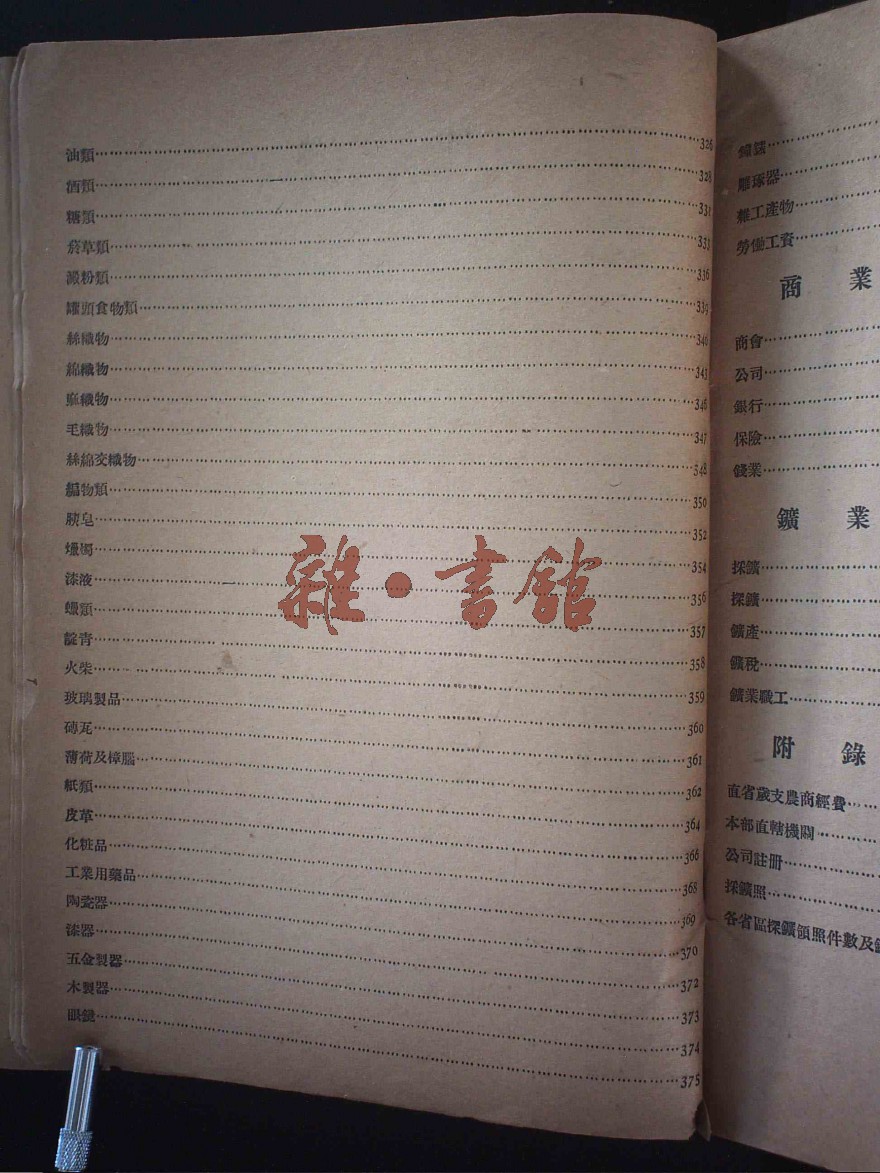 油類……326
酒類……328
糖類……331
菸草類……333
澱粉類……336
罐頭食物類……339
絲織物……340
綿織物……343
麻織物……346
毛織物……347
絲綿交織物……348
編物類……350
胰皂……352
蠟燭……354
漆液……356
蠟類……357
靛青……358
火柴……359
玻璃製品……360
磚瓦……361
薄荷及樟腦……362
紙類……364
皮革……366
化粧品……368
工業用藥品……369
陶瓷器……370
漆器……372
五金製器……373
木製器……374
眼鏡……375
雕琢器……
雜工產物……
勞働工資……
商業
商會……
公司……
銀行……
保險……
錢業……
鑛業
採鑛……
探鑛……
鑛產……
鑛稅……
鑛業職工……
附錄
直省歲支農商經費……
本部直轄機關……
公司註册……
採鑛照……
各省區探鑛領照件數及
雜·書館